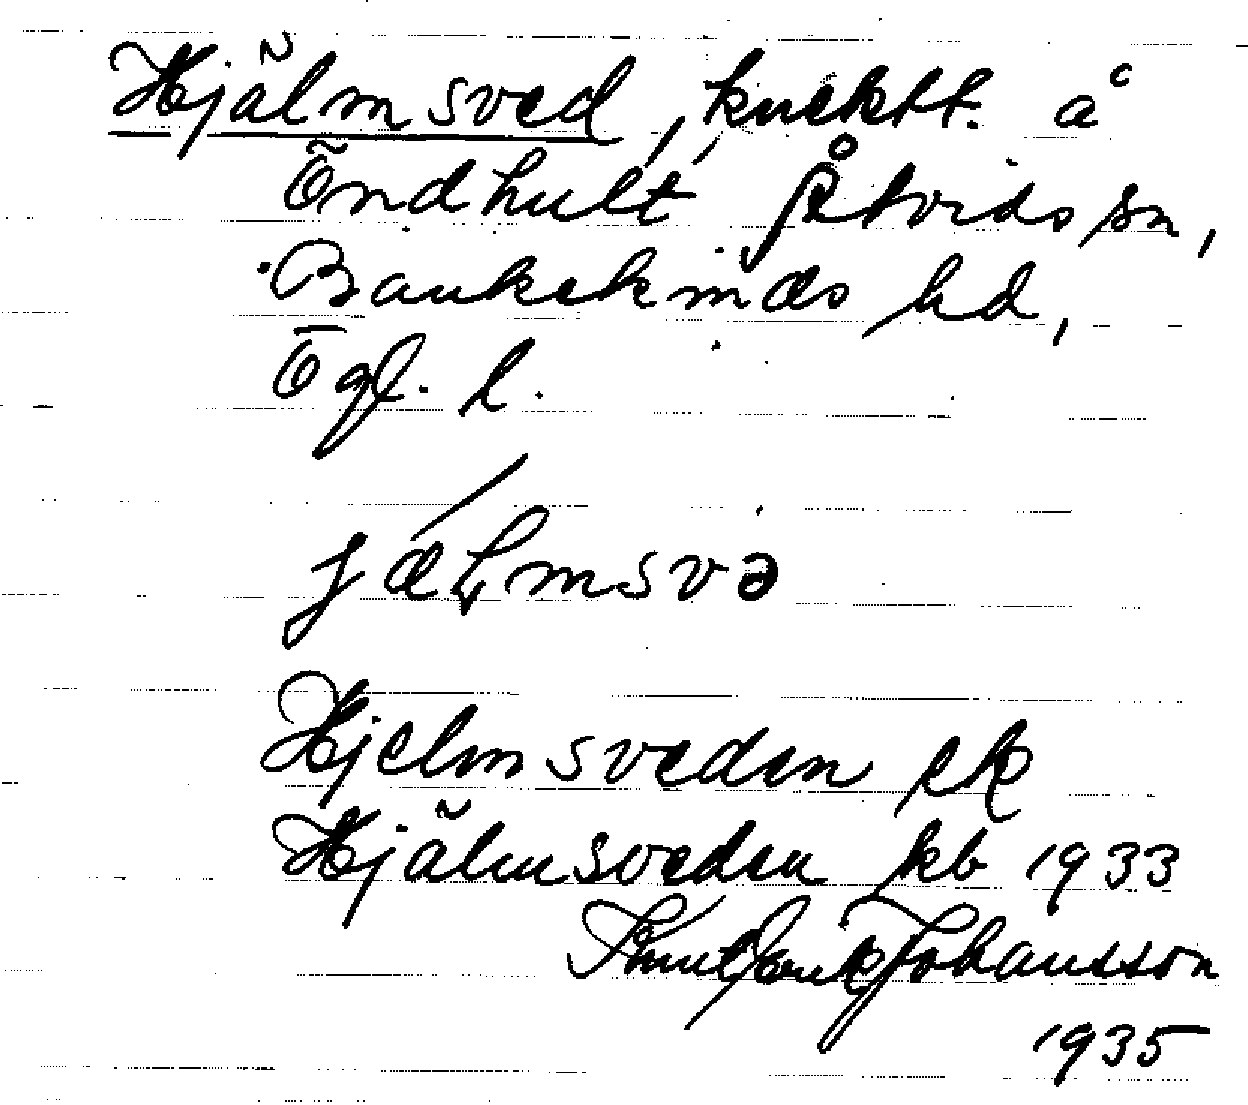 Hjälmsved, knektt. å
Öndhult Åtvids sn,
Bankekinds hd,
Ögl. l.
jæLmsvə
Hjelmsveden ek
Hjälmsveden kb 1933
Knut Erik Johansson
1935